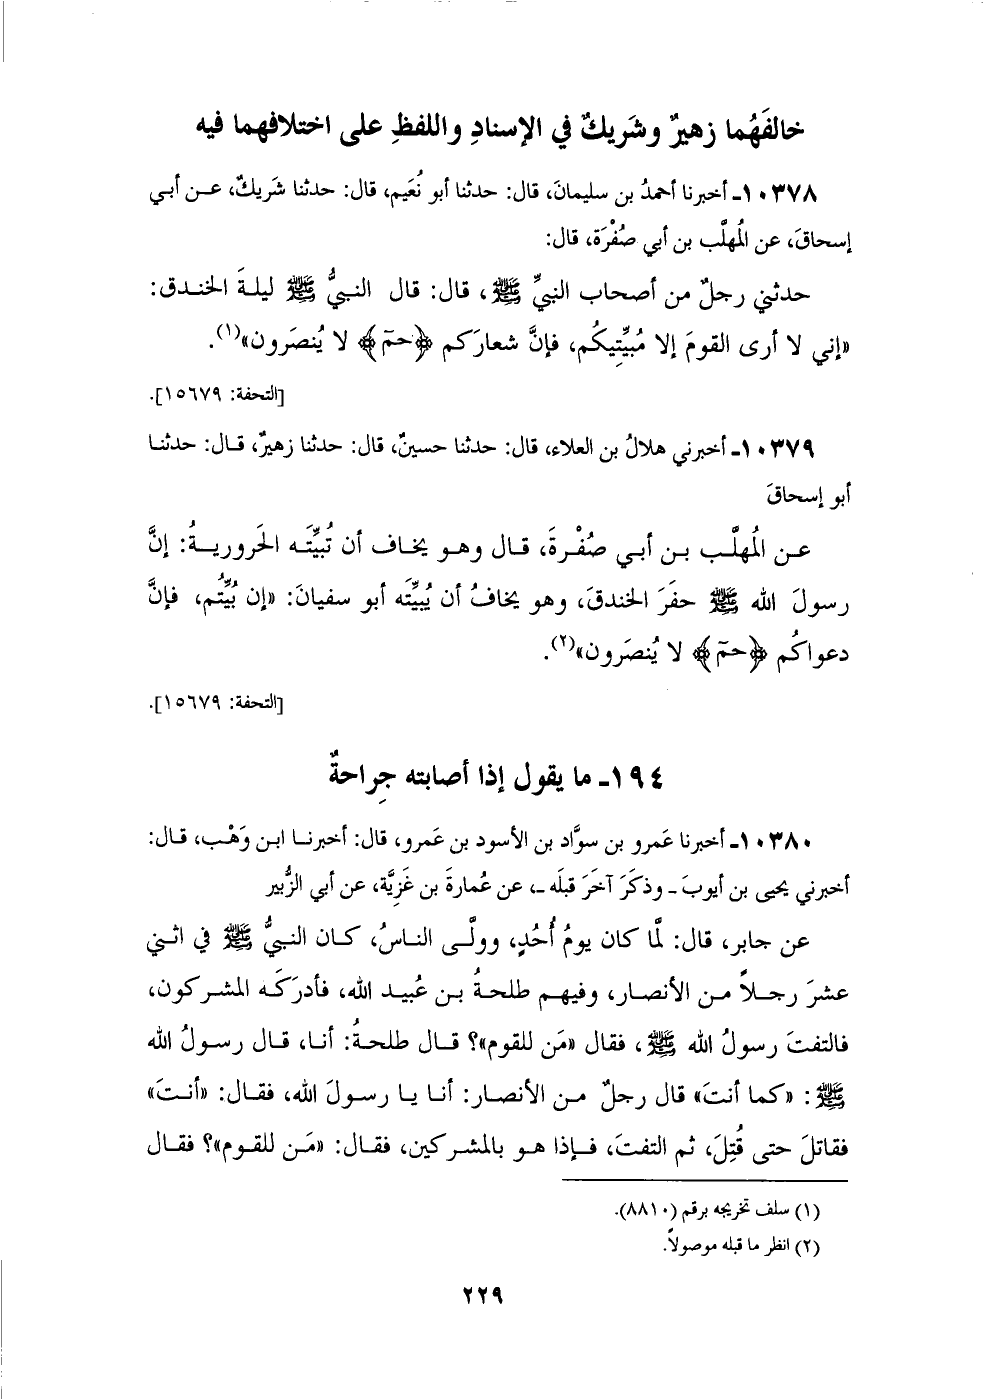 خالفَهُما زهيرٌ وشَريكٌ في الإسنادِ واللفظِ على اختلافهما فيه
١٠٣٧٨ـ أخبرنا أحمدُ بن سليمانَ، قال: حدثنا أبو نُعَيم، قال: حدثنا شَريكٌ، عـن أبي
إسحاقَ، عن المُهلَّب بن أبي صُفْرَة، قال:
حدثني رجلٌ من أصحاب النبيِّ ﷺ، قال: قال النبيُّ ﷺ ليلةَ الخندق:
«إني لا أرى القومَ إلا مُبيِّتِيكُم، فإنَّ شعارَكم ﴿حمَ﴾ لا يُنصَرون»(١).
[التحفة: ١٥٦٧٩].
١٠٣٧٩ـ أخبرني هلالُ بن العلاء، قال: حدثنا حسينٌ، قال: حدثنا زهيرٌ، قـال: حدثنـا
أبو إسحاقَ
عـن المُهلَّـب بـن أبـي صُفْـرةَ، قـال وهـو يخـاف أن تُبيِّتَـه الحَروريـةُ: إنَّ
رسولَ الله ﷺ حفَرَ الخندقَ، وهو يخافُ أن يُبيِّتَه أبو سفيانَ: «إن بُيِّتُم، فإنَّ
دعواكُم ﴿حمَ﴾ لا يُنصَرون»(٢).
[التحفة: ١٥٦٧٩].
١٩٤ـ ما يقول إذا أصابته جِراحةٌ
١٠٣٨٠ـ أخبرنا عَمرو بن سوَّاد بن الأسود بن عَمرو، قال: أخبرنـا ابـن وَهْـب، قـال:
أخبرني يحيى بن أيوبَ ـ وذكَرَ آخَرَ قبلَه ـ، عن عُمارةَ بن غَزِيَّة، عن أبي الزُّبير
عن جابر، قال: لمَّا كان يومُ أُحُدٍ، وولَّـى النـاسُ، كـان النبيُّ ﷺ في اثـني
عشرَ رجـلاً مـن الأنصـار، وفيهـم طلحـةُ بـن عُبيـد الله، فأدركَـه المشـركون،
فالتفتَ رسولُ الله ﷺ، فقال «مَن للقوم»؟ قـال طلحـةُ: أنـا، قـال رسـولُ الله
ﷺ: «كما أنتَ» قال رجلٌ مـن الأنصـار: أنـا يـا رسـولَ الله، فقـال: «أنـتَ»
فقاتلَ حتى قُتِلَ، ثم التفتَ، فـإذا هـو بالمشـركين، فقـال: «مَـن للقـوم»؟ فقـال
(١) سلف تخريجه برقم (٨٨١٠).
(٢) انظر ما قبله موصولاً.
٢٢٩